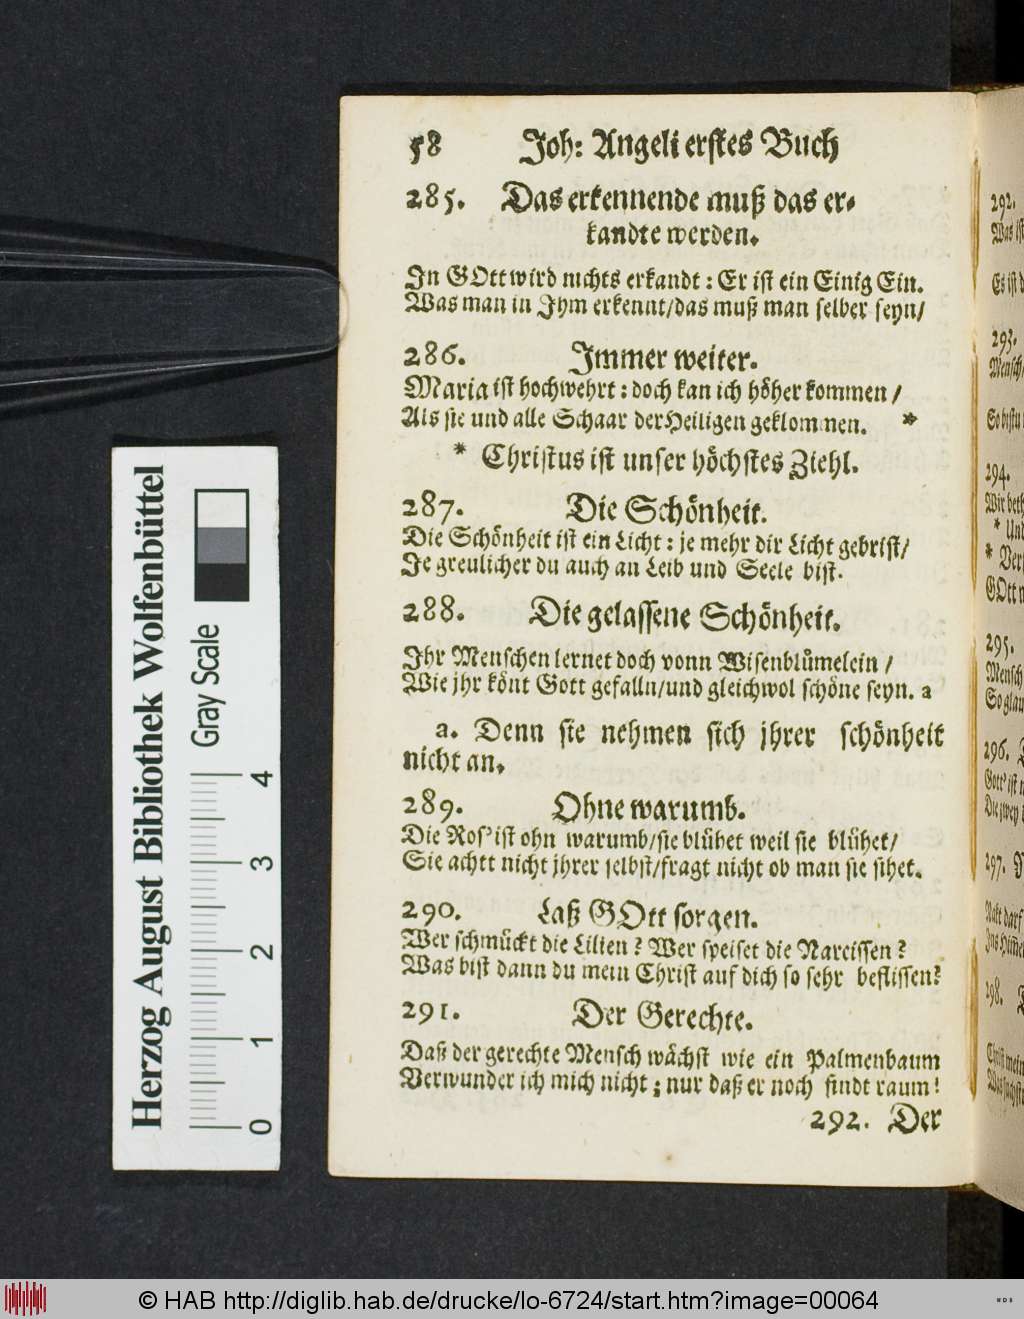 58 Joh: Angeli erstes Buch
285. Das erkennende muß das er-
kandte werden.
In GOtt wird nichts erkandt: Er ist ein Einig Ein.
Was man in Jhm erkennt/das muß man selber seyn/
286. Immer weiter.
Maria ist hochwehrt: doch kan ich höher kommen/
Als sie und alle Schaar der Heiligen geklommen. *
* Christus ist unser höchstes Ziehl.
287. Die Schönheit.
Die Schönheit ist ein Licht: je mehr dir Licht gebrist/
Je greulicher du auch an Leib und Seele bist.
288. Die gelassene Schönheit.
Ihr Menschen lernet doch vonn Wisenblümelein/
Wie jhr könt Gott gefalln/und gleichwol schöne seyn. a
a. Denn sie nehmen sich jhrer schönheit
nicht an.
289. Ohne warumb.
Die Ros' ist ohn warumb/sie blühet weil sie blühet/
Sie achtt nicht jhrer selbst/fragt nicht ob man sie sihet.
290. Laß GOtt sorgen.
Wer schmückt die Lilien? Wer speiset die Narcissen?
Was bist dann du mein Christ auf dich so sehr beflissen?
291. Der Gerechte.
Daß der gerechte Mensch wächst wie ein Palmenbaum
Verwunder ich mich nicht; nur daß er noch findt raum!
292. Der
292.
Was ist
Es ist d
293.
Mensch/
So bistu
294.
Wir beth
* Und
GOtt
295.
Mensch
So glau
296.
Gott' ist
Die zwey
297.
Nakt darf
298.
Christ mein
Herzog August Bibliothek Wolfenbüttel
Gray Scale
0 1 2 3 4
© HAB http://diglib.hab.de/drucke/lo-6724/start.htm?image=00064
WDB